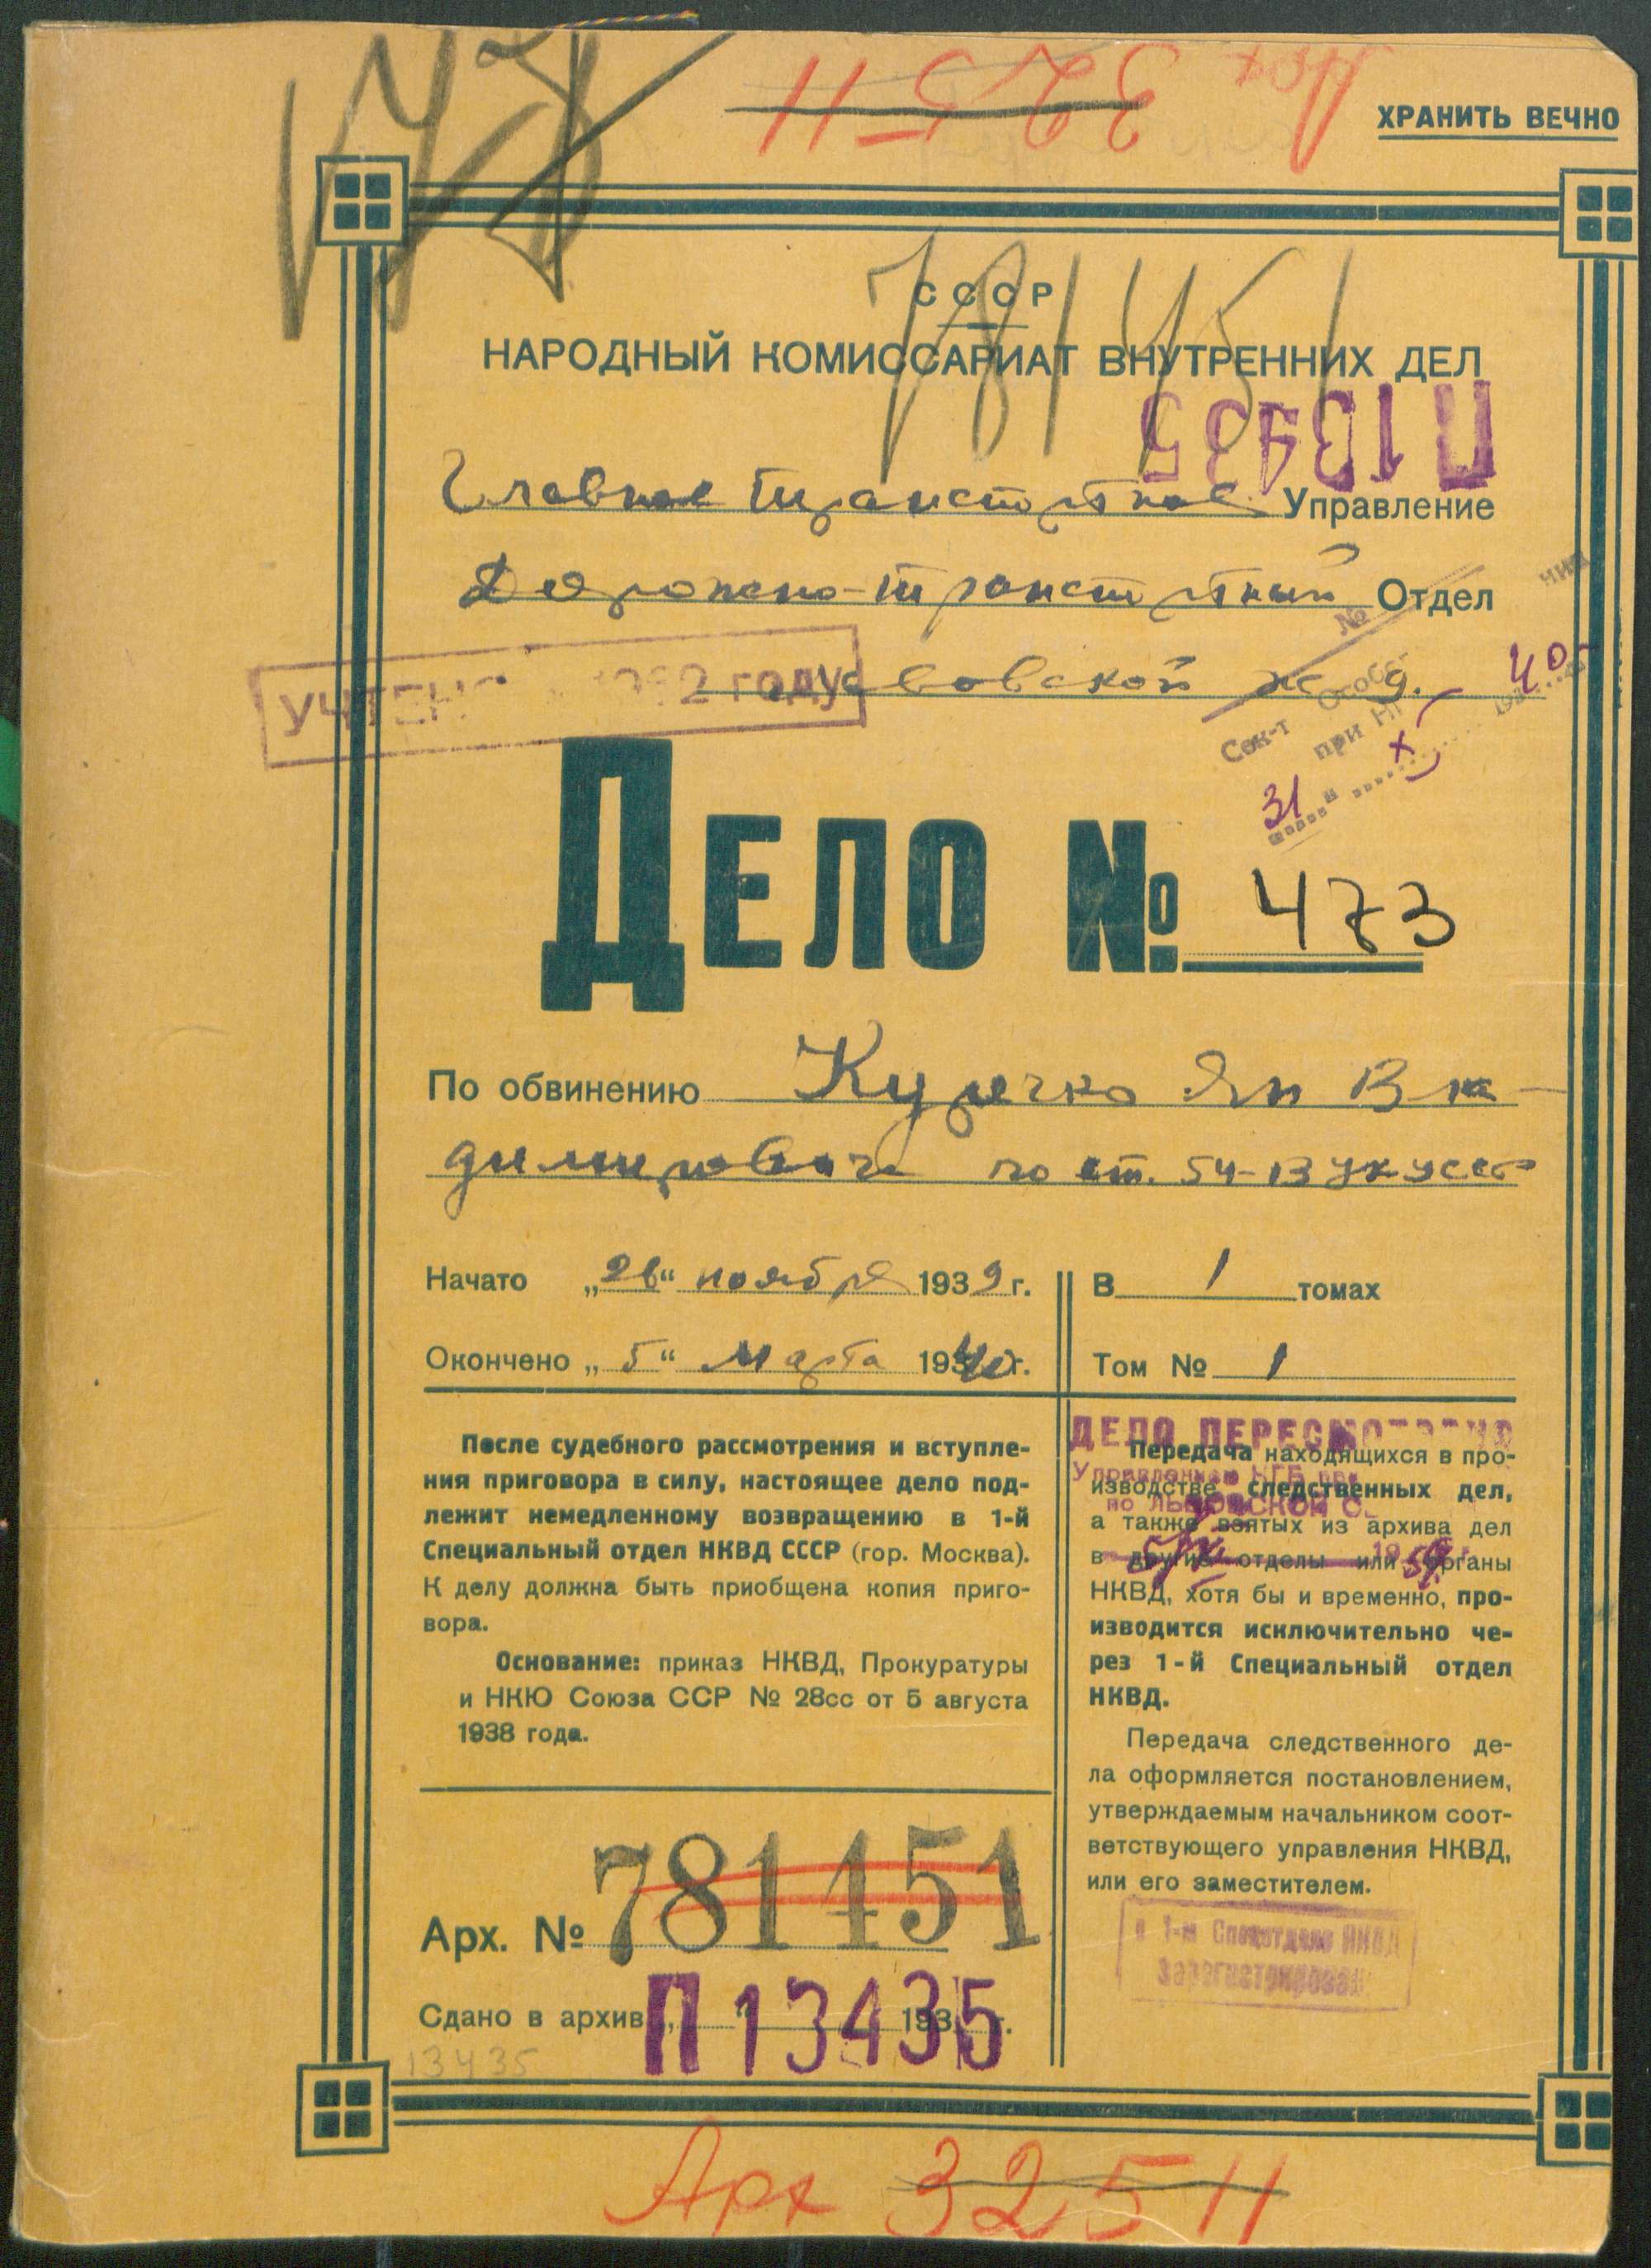 Арх 32511
ХРАНИТЬ ВЕЧНО
СССР
781451
НАРОДНЫЙ КОМИССАРИАТ ВНУТРЕННИХ ДЕЛ
П 13435
Главное транспортное Управление
Дорожно-транспортный Отдел
Львовской ж. д.
УЧТЕНО 2 ГОДУ
№
Сек-т Особ
при
31 X 40
Дело № 473
По обвинению Ян Вла-
димировича по ст. 54-13 УК УССР
Начато „26“ ноября 1939 г.
Окончено „5“ Марта 1940 г.
В 1 томах
Том № 1
После судебного рассмотрения и вступле-
ния приговора в силу, настоящее дело под-
лежит немедленному возвращению в 1-й
Специальный отдел НКВД СССР (гор. Москва).
К делу должна быть приобщена копия приго-
вора.
Основание: приказ НКВД, Прокуратуры
и НКЮ Союза ССР № 28сс от 5 августа
1938 года.
ДЕЛО ПЕРЕСМОТРЕНО
Управлением КГБ при
по ЛЬВОВСКОЙ О
59
Передача находящихся в про-
изводстве следственных дел,
а также взятых из архива дел
в другие отделы или органы
НКВД, хотя бы и временно, про-
изводится исключительно че-
рез 1-й Специальный отдел
НКВД.
Передача следственного де-
ла оформляется постановлением,
утверждаемым начальником соот-
ветствующего управления НКВД,
или его заместителем.
в 1-м Спецотделе НКВД
Зарегистрирован
Арх. № 781451
Сдано в архив „ “ 193 г.
П 13435
13435
Арх 32511